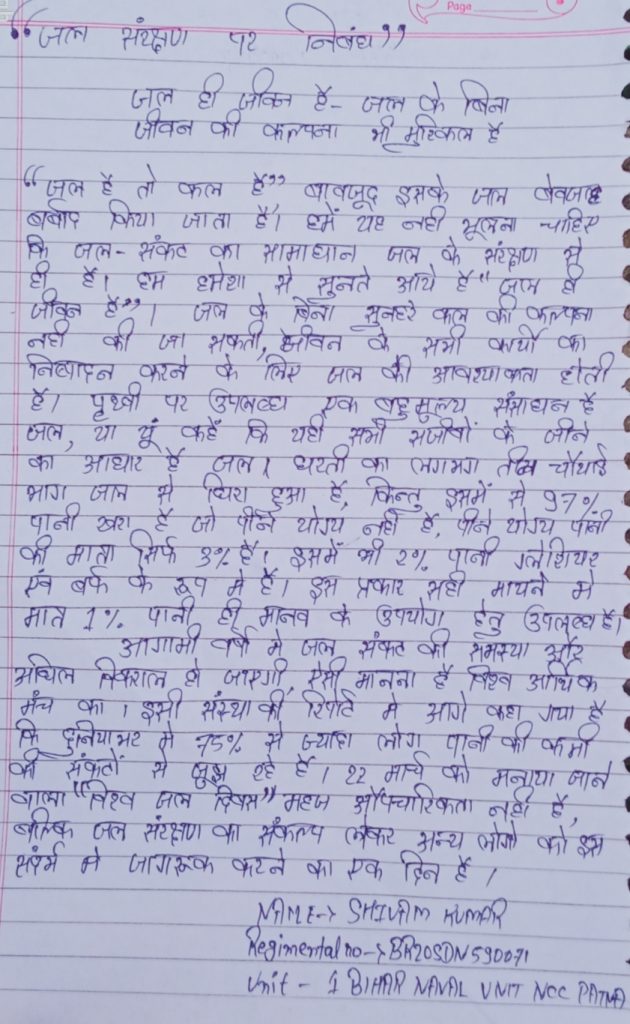 Page
“जल संरक्षण पर निबंध”
जल ही जीवन है - जल के बिना
जीवन की कल्पना भी मुश्किल है
“जल है तो कल है” बावजूद इसके जल बेवजह
बर्बाद किया जाता है। हमें यह नही भूलना चाहिए
कि जल-संकट का सामाधान जल के संरक्षण से
ही है। हम हमेशा से सुनते आये है “जल ही
जीवन है”। जल के बिना सुनहरे कल की कल्पना
नही की जा सकती, जीवन के सभी कार्यो का
निष्पादन करने के लिए जल की आवश्याकता होती
है। पृथ्वी पर उपलब्ध एक बहुमुल्य संसाधन है
जल, या यूं कहें कि यही सभी सजीवों के जीने
का आधार है जल। धरती का लगभग तीन चौथाई
भाग जल से घिरा हुआ है, किन्तु इसमें से 97%
पानी खरा है जो पीने योग्य नहीं है, पीने योग्य पानी
की माता सिर्फ 3% है। इसमें भी 2% पानी ग्लेशियर
एंव बर्फ के रूप मे है। इस प्रकार सही मायने मे
मात 1% पानी ही मानव के उपयोग हेतु उपलब्ध है।
आगामी वर्षो मे जल संकट की समस्या और
अधिल विकराल हो जाएगी, ऐसी मानना है विश्व आर्थिक
मंच का। इसी संस्था की रिपोर्ट मे आगे कहा गया है
कि दुनियाभर मे 75% से ज्यादा लोग पानी की कमी
की संकटो से जुझ रहे है। 22 मार्च को मनाया जाने
वाला “विश्व जल दिवस” महज औपचारिकता नहीं है,
बल्कि जल संरक्षण का संकल्प लेकर अन्य लोगो को इस
संदर्भ मे जागरूक करने का एक दिन है।
NAME-> SHIVAM KUMAR
Regimental no-> BR20SDN590071
Unit - 1 BIHAR NAVAL UNIT NCC PATNA